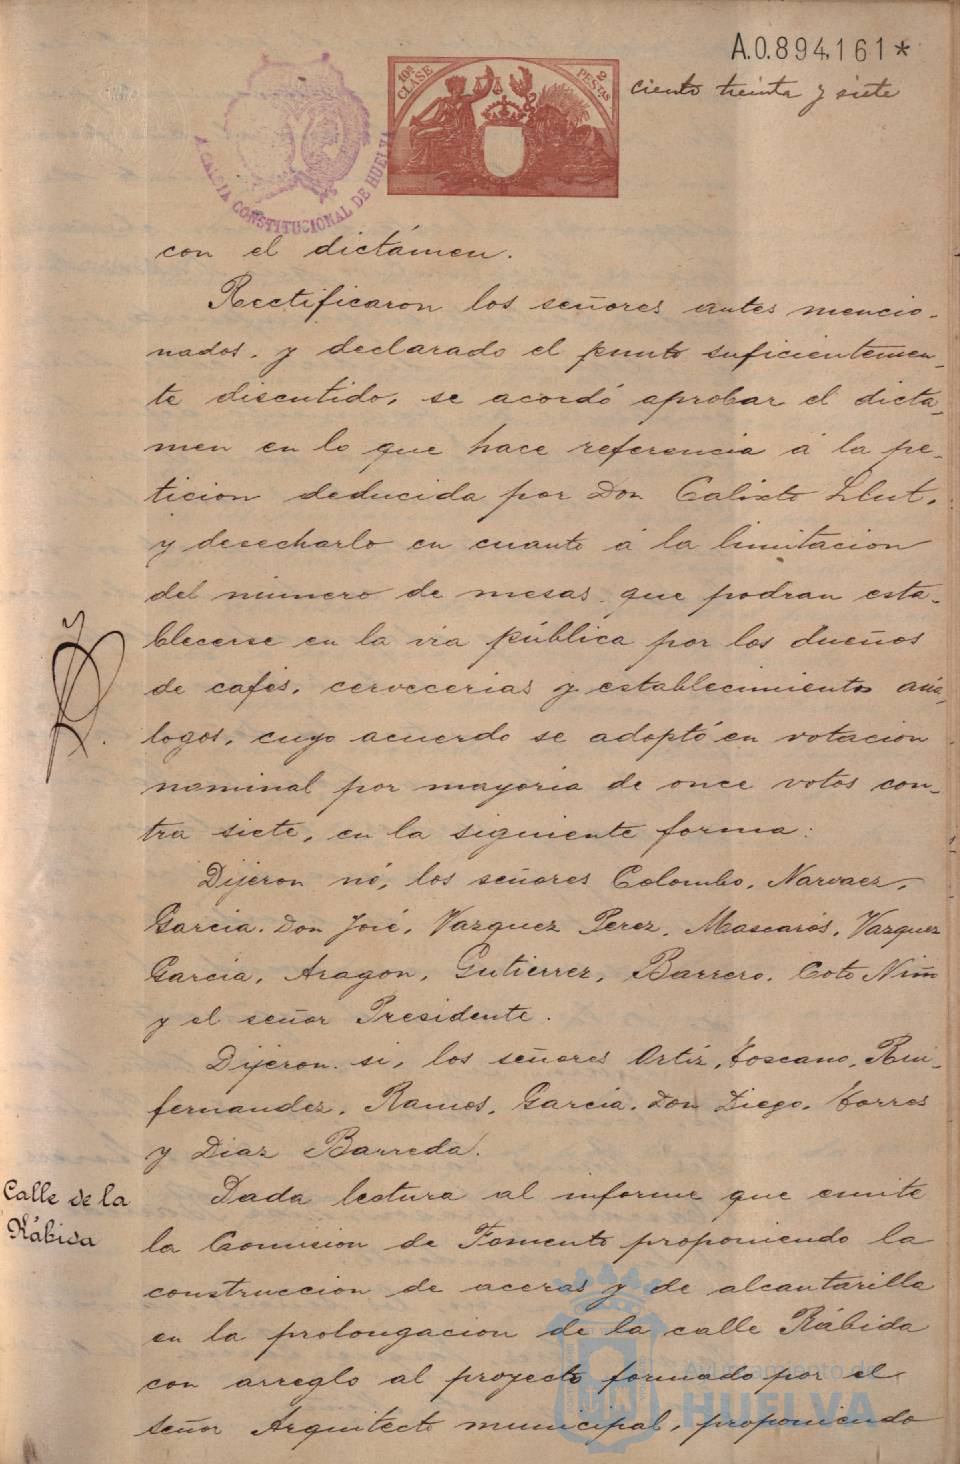 A.0.894,161*
10ª CLASE
2 PESTAS
ciento treinta y siete
ALCALDIA CONSTITUCIONAL DE HUELVA
con el dictámen.
Rectificaron los señores antes mencio-
nados, y declarado el punto suficientemen-
te discutido, se acordó aprobar el dictá-
men en lo que hace referencia á la pe-
ticion deducida por Don Calixto Llut,
y desecharlo en cuanto á la limitacion
del número de mesas que podran esta-
blecerse en la via pública por los dueños
de cafés, cervecerias y establecimientos aná-
logos, cuyo acuerdo se adoptó en votacion
nominal por mayoria de once votos con-
tra siete, en la siguiente forma:
Dijeron nó, los señores Colombo, Narvaez,
Garcia Don José, Vazquez Perez, Mascarós, Vazquez
Garcia, Aragon, Gutierrez, Barrero, Coto Niño
y el señor Presidente.
Dijeron si, los señores Ortiz, Toscano, Rui-
fernandez, Ramos, Garcia Don Diego, Torres
y Diaz Barreda.
Calle de la
Rábida
Dada lectura al informe que emite
la Comision de Fomento proponiendo la
construccion de aceras y de alcantarilla
en la prolongacion de la calle Rábida
con arreglo al proyecto formado por el
señor Arquitecto municipal, proponiendo
Ayuntamiento de
HUELVA